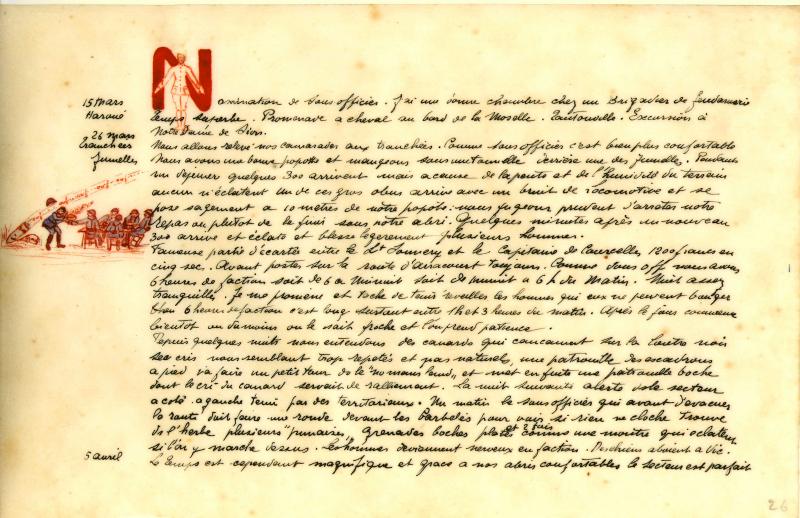 15 Mars
Haroué
Nomination de sous officier. J'ai une bonne chambre chez un Brigadier de Gendarmerie
temps superbe. Promenade a cheval au bord de la Moselle. Tantonville. Excursion à
Notre Dame de Sion.
26 mars
tranchées
Jumelles
Nous allons relevé nos camarades aux tranchées. Comme sous officier c'est bien plus confortable
Nous avons une bonne popote et mangeons sous une tonnelle derrière une des Jumelles. Pendant
un dejeuner quelques 300 arrivent mais a cause de la pente et de l'humidité du terrain
aucun n'éclatent un de ces gros obus arrive avec un bruit de locomotive et se
pose sagement a 10 mètres de notre popote: nous jugeons prudent d'arreter notre
repas ou plutot de le finir sous notre abri. Quelques minutes après un nouveau
300 arrive et éclate et blesse legerement plusieurs hommes.
Fameuse partie d'écarté entre le Lt et le Capitaine de Courcelles 1200 francs en
cinq sec. Avant postes sur la route d'Arracourt toujours. Comme sous off nous avons
6 heures de faction soit de 6 a Minuit soit de minuit a 6 h du Matin. Nuit assez
tranquilles. Je me promene et tache de tenir eveillés les hommes qui eux ne peuvent bouger
6 heures de faction c'est long surtout entre 1h et 3 heures du matin. Après le jour commence
bientot ou du moins on le sait proche et l'on prend patience.
Depuis quelques nuits nous entendons des canards qui cancanent sur la Loutre noire
ses cris nous semblant trop repetés et pas naturels, une patrouille des escadrons
a pied va faire un petit tour de le "no mans land" et met en fuite une patrouille boche
dont le cri du canard servait de ralliement. La nuit suivante alerte dole secteur
a coté a gauche tenu par des territoriaux. Un matin le sous officier qui avant d'evacuer
la route doit faire une ronde devant les Barbelés pour voir si rien ne cloche trouve
de l'herbe plusieurs "punaises" grenades boches plates et 2 fois comme une montre qui eclatent
si l'on y marche dessus. Les hommes deviennent nerveux en faction. Des chiens aboient a Vic.
5 avril
Le temps est cependant magnifique et grace a nos abris confortables le secteur est parfait
26